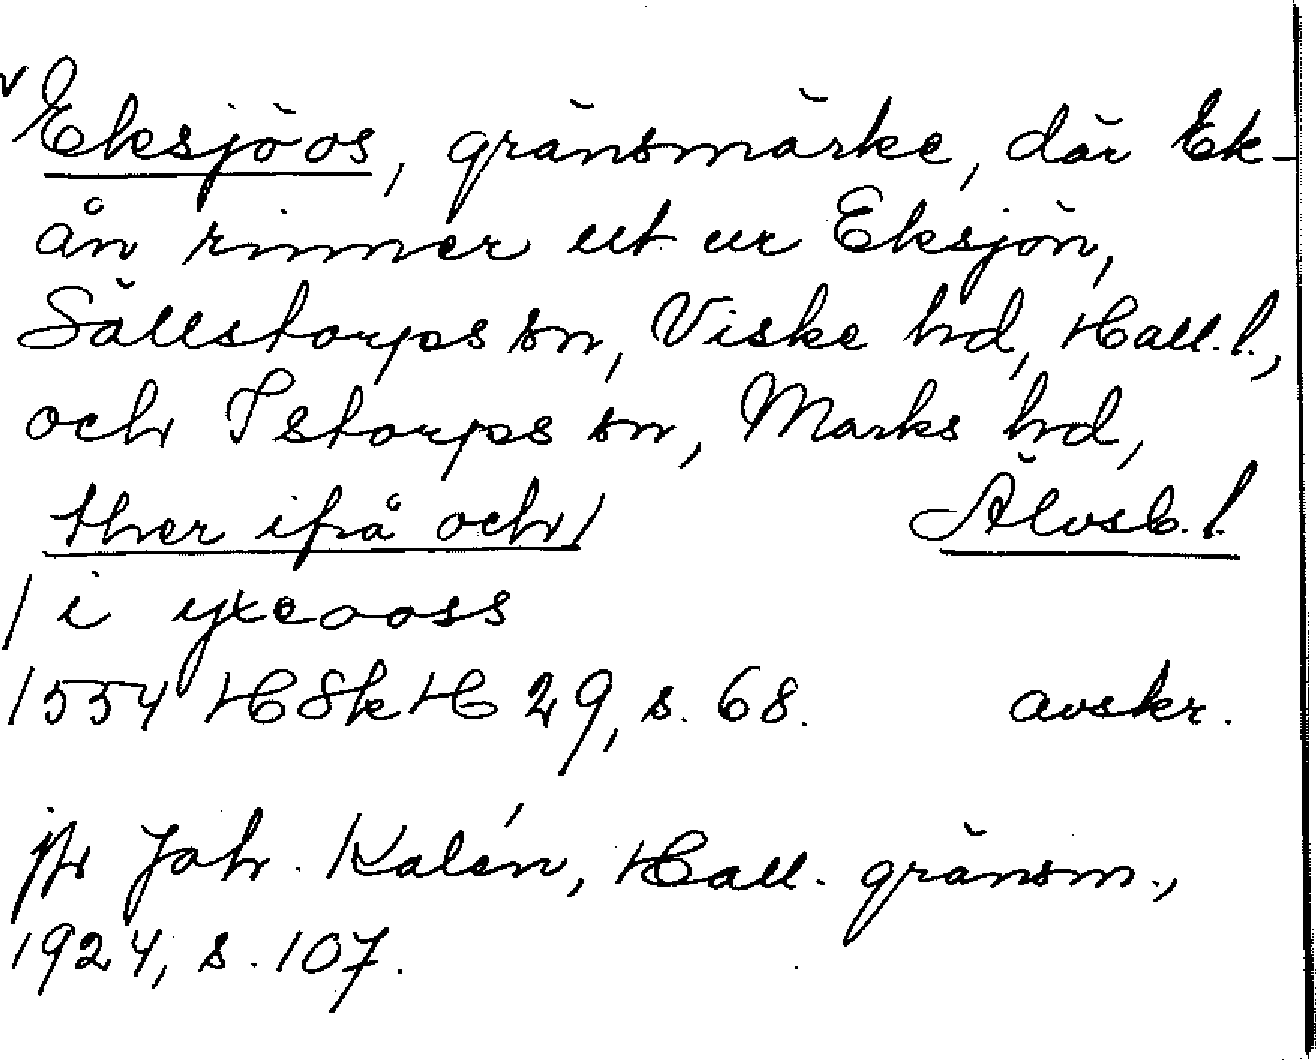 v Eksjöos, gränsmärke, där Ek-
ån rinner ut ur Eksjön,
Sällstorps sn, Viske hd, Hall. l.,
och Istorps sn, Marks hd,
ther ifrå och/ Älvsb. l.
/i yxeooss
1554 HSkH 29, s. 68. avskr.
jfr Joh. Kalén, Hall. gränsm.,
1924, s. 107.